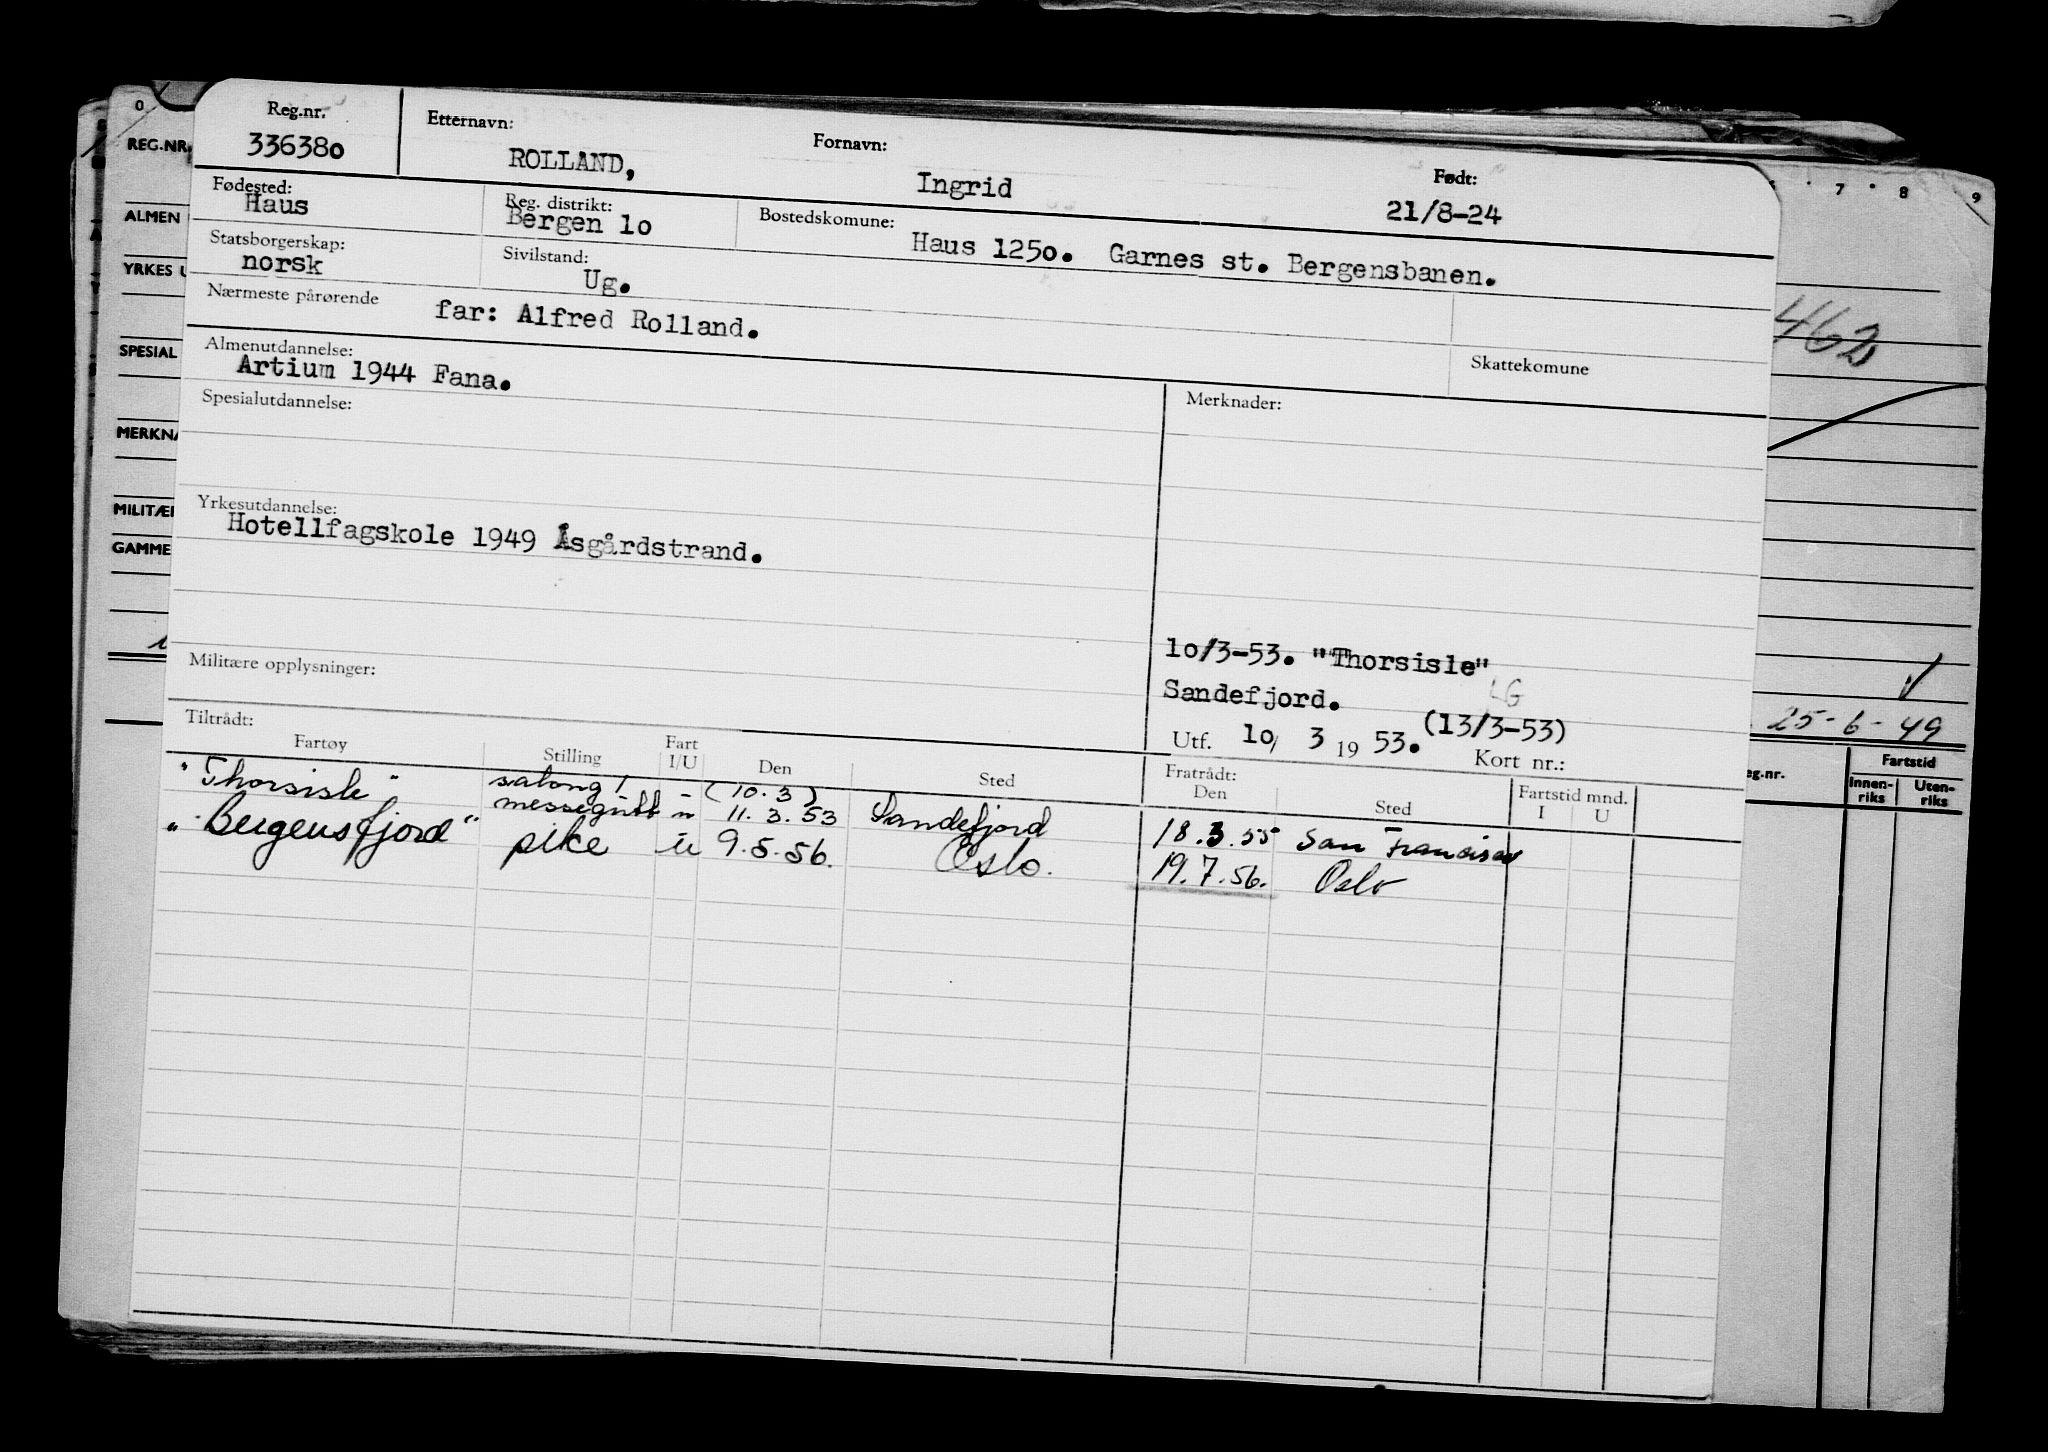 0 7 8 9
Reg.nr. Etternavn: Fornavn: Født:
336380 ROLLAND, Ingrid 21/8-24
REG.NR.
Fødested: Reg. distrikt: Bostedskomune:
Haus Bergen 10 Haus 1250. Garnes st. Bergensbanen.
ALMEN
Statsborgerskap: Sivilstand:
norsk Ug.
YRKES U
Nærmeste pårørende far: Alfred Rolland.
462
Almenutdannelse: Skattekomune
Artium 1944 Fana.
SPESIAL
Spesialutdannelse: Merknader:
MERKNA
Yrkesutdannelse:
Hotellfagskole 1949 Åsgårdstrand.
MILITÆR
GAMME
Militære opplysninger:
10/3-53. "Thorsisle"
Sandefjord. LG
(13/3-53)
Utf. 10/ 3 19 53. Kort nr.:
25-6-49
Tiltrådt: Fratrådt:
Fartøy Stilling Fart I/U Den Sted Den Sted Fartstid mnd. I U
eg.nr. Fartstid
Innen-riks Uten-riks
"Thorsisle" salong/ - (10.3)
messegutt u 11.3.53 Sandefjord 18.3.55 San Francisco
"Bergensfjord" pike u 9.5.56. Oslo. 19.7.56. Oslo